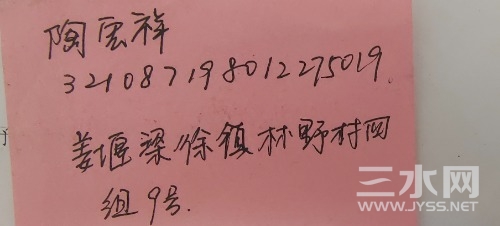 陶云祥
321087198012275019
姜堰梁徐镇林野村四
组9号.
三水网
WWW.JYSS.NET